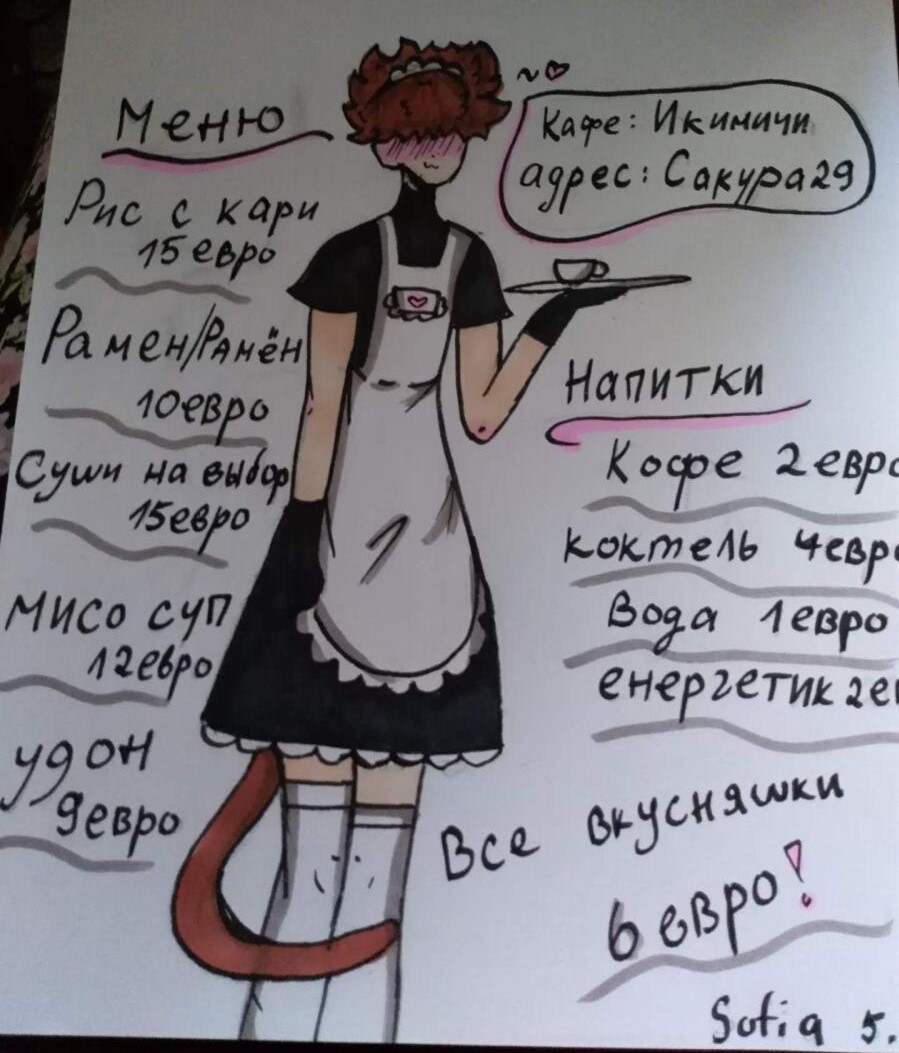 Меню
Рис с кари
15 евро
Рамен/Рамён
10евро
Суши на выбор
15евро
мисо суп
12евро
удон
9евро
Кафе: Икимичи
адрес: Сакура29
Напитки
Кофе 2евро
коктель 4евро
Вода 1евро
енергетик 2ев
Все вкусняшки
6 евро!
Sofia 5.